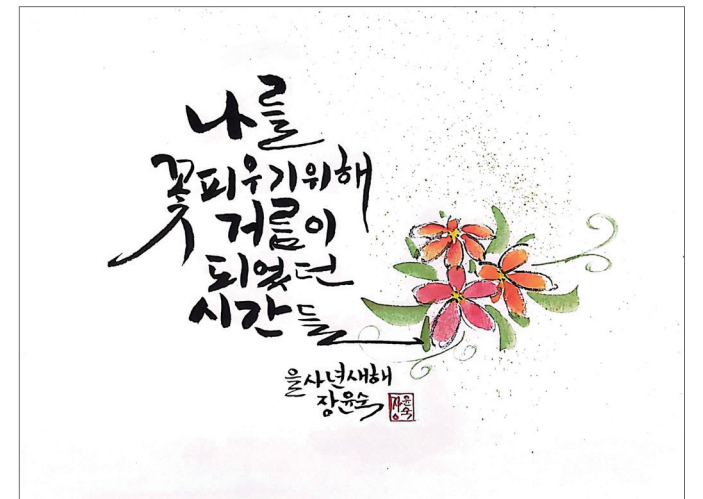 나를
꽃피우기위해
거름이
되었던
시간들
을사년새해
장윤숙
장윤숙